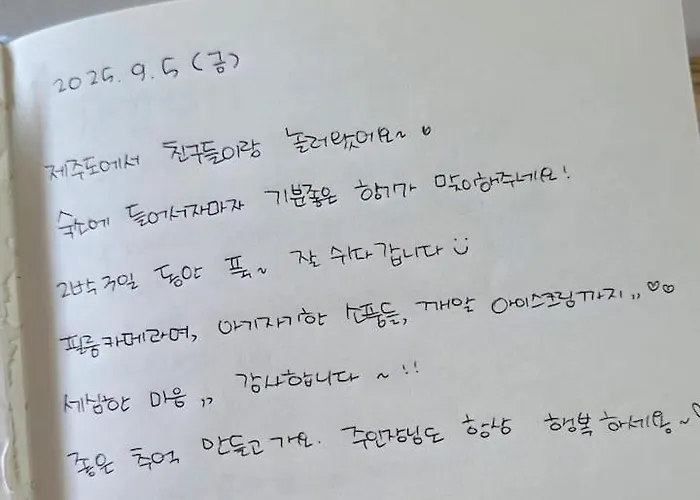 2025. 9. 5 (금)
제주도에서 친구들이랑 놀러왔어요~ ♥
숙소에 들어서자마자 기분좋은 향기가 맞이해주네요!
2박 3일 동안 푹~ 잘 쉬다 갑니다 :)
필름카메라며, 아기자기한 소품들, 깨알 아이스크림까지,, ♡♡
세심한 마음,, 감사합니다 ~ !!
좋은 추억 만들고 가요. 주인장님도 항상 행복하세용~♡